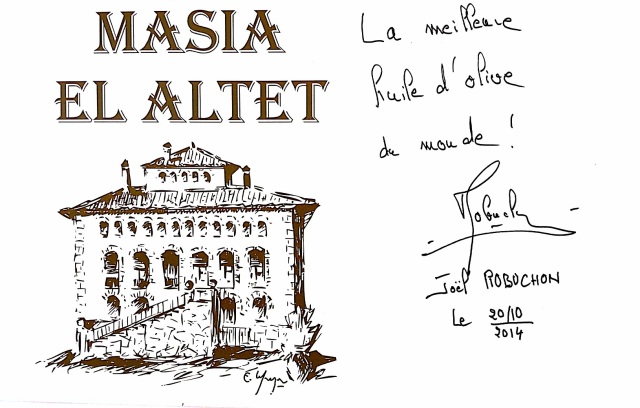 MASIA
EL ALTET
La meilleure
huile d'olive
du monde !
Robuchon
Joël ROBUCHON
Le 20/10
2014